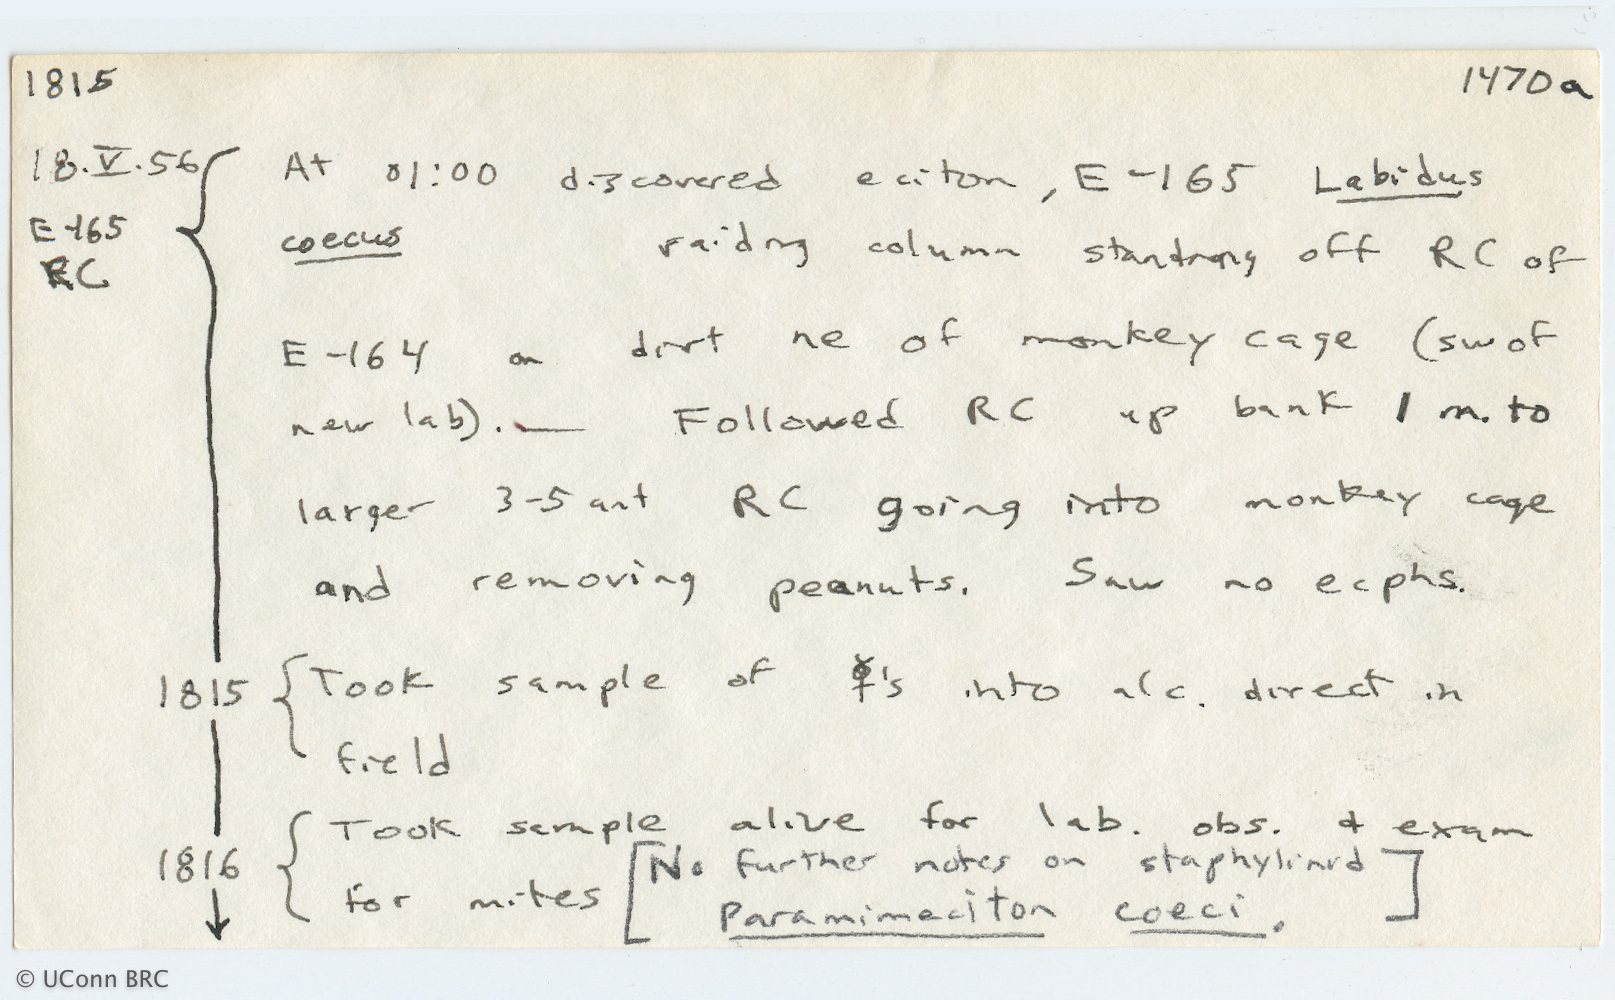 1815 1470a
18.V.56 At 01:00 discovered eciton, E-165 Labidus
E-165 coecus raiding column standing off RC of
RC
E-164 on dirt ne of monkey cage (sw of
new lab). — Followed RC up bank 1 m. to
larger 3-5 ant RC going into monkey cage
and removing peanuts. Saw no ecphs.
1815 { Took sample of 's into alc. direct in
field
1816 { Took sample alive for lab. obs. & exam
for mites [No further notes on staphylinid
Paramimeciton coeci.]
© UConn BRC